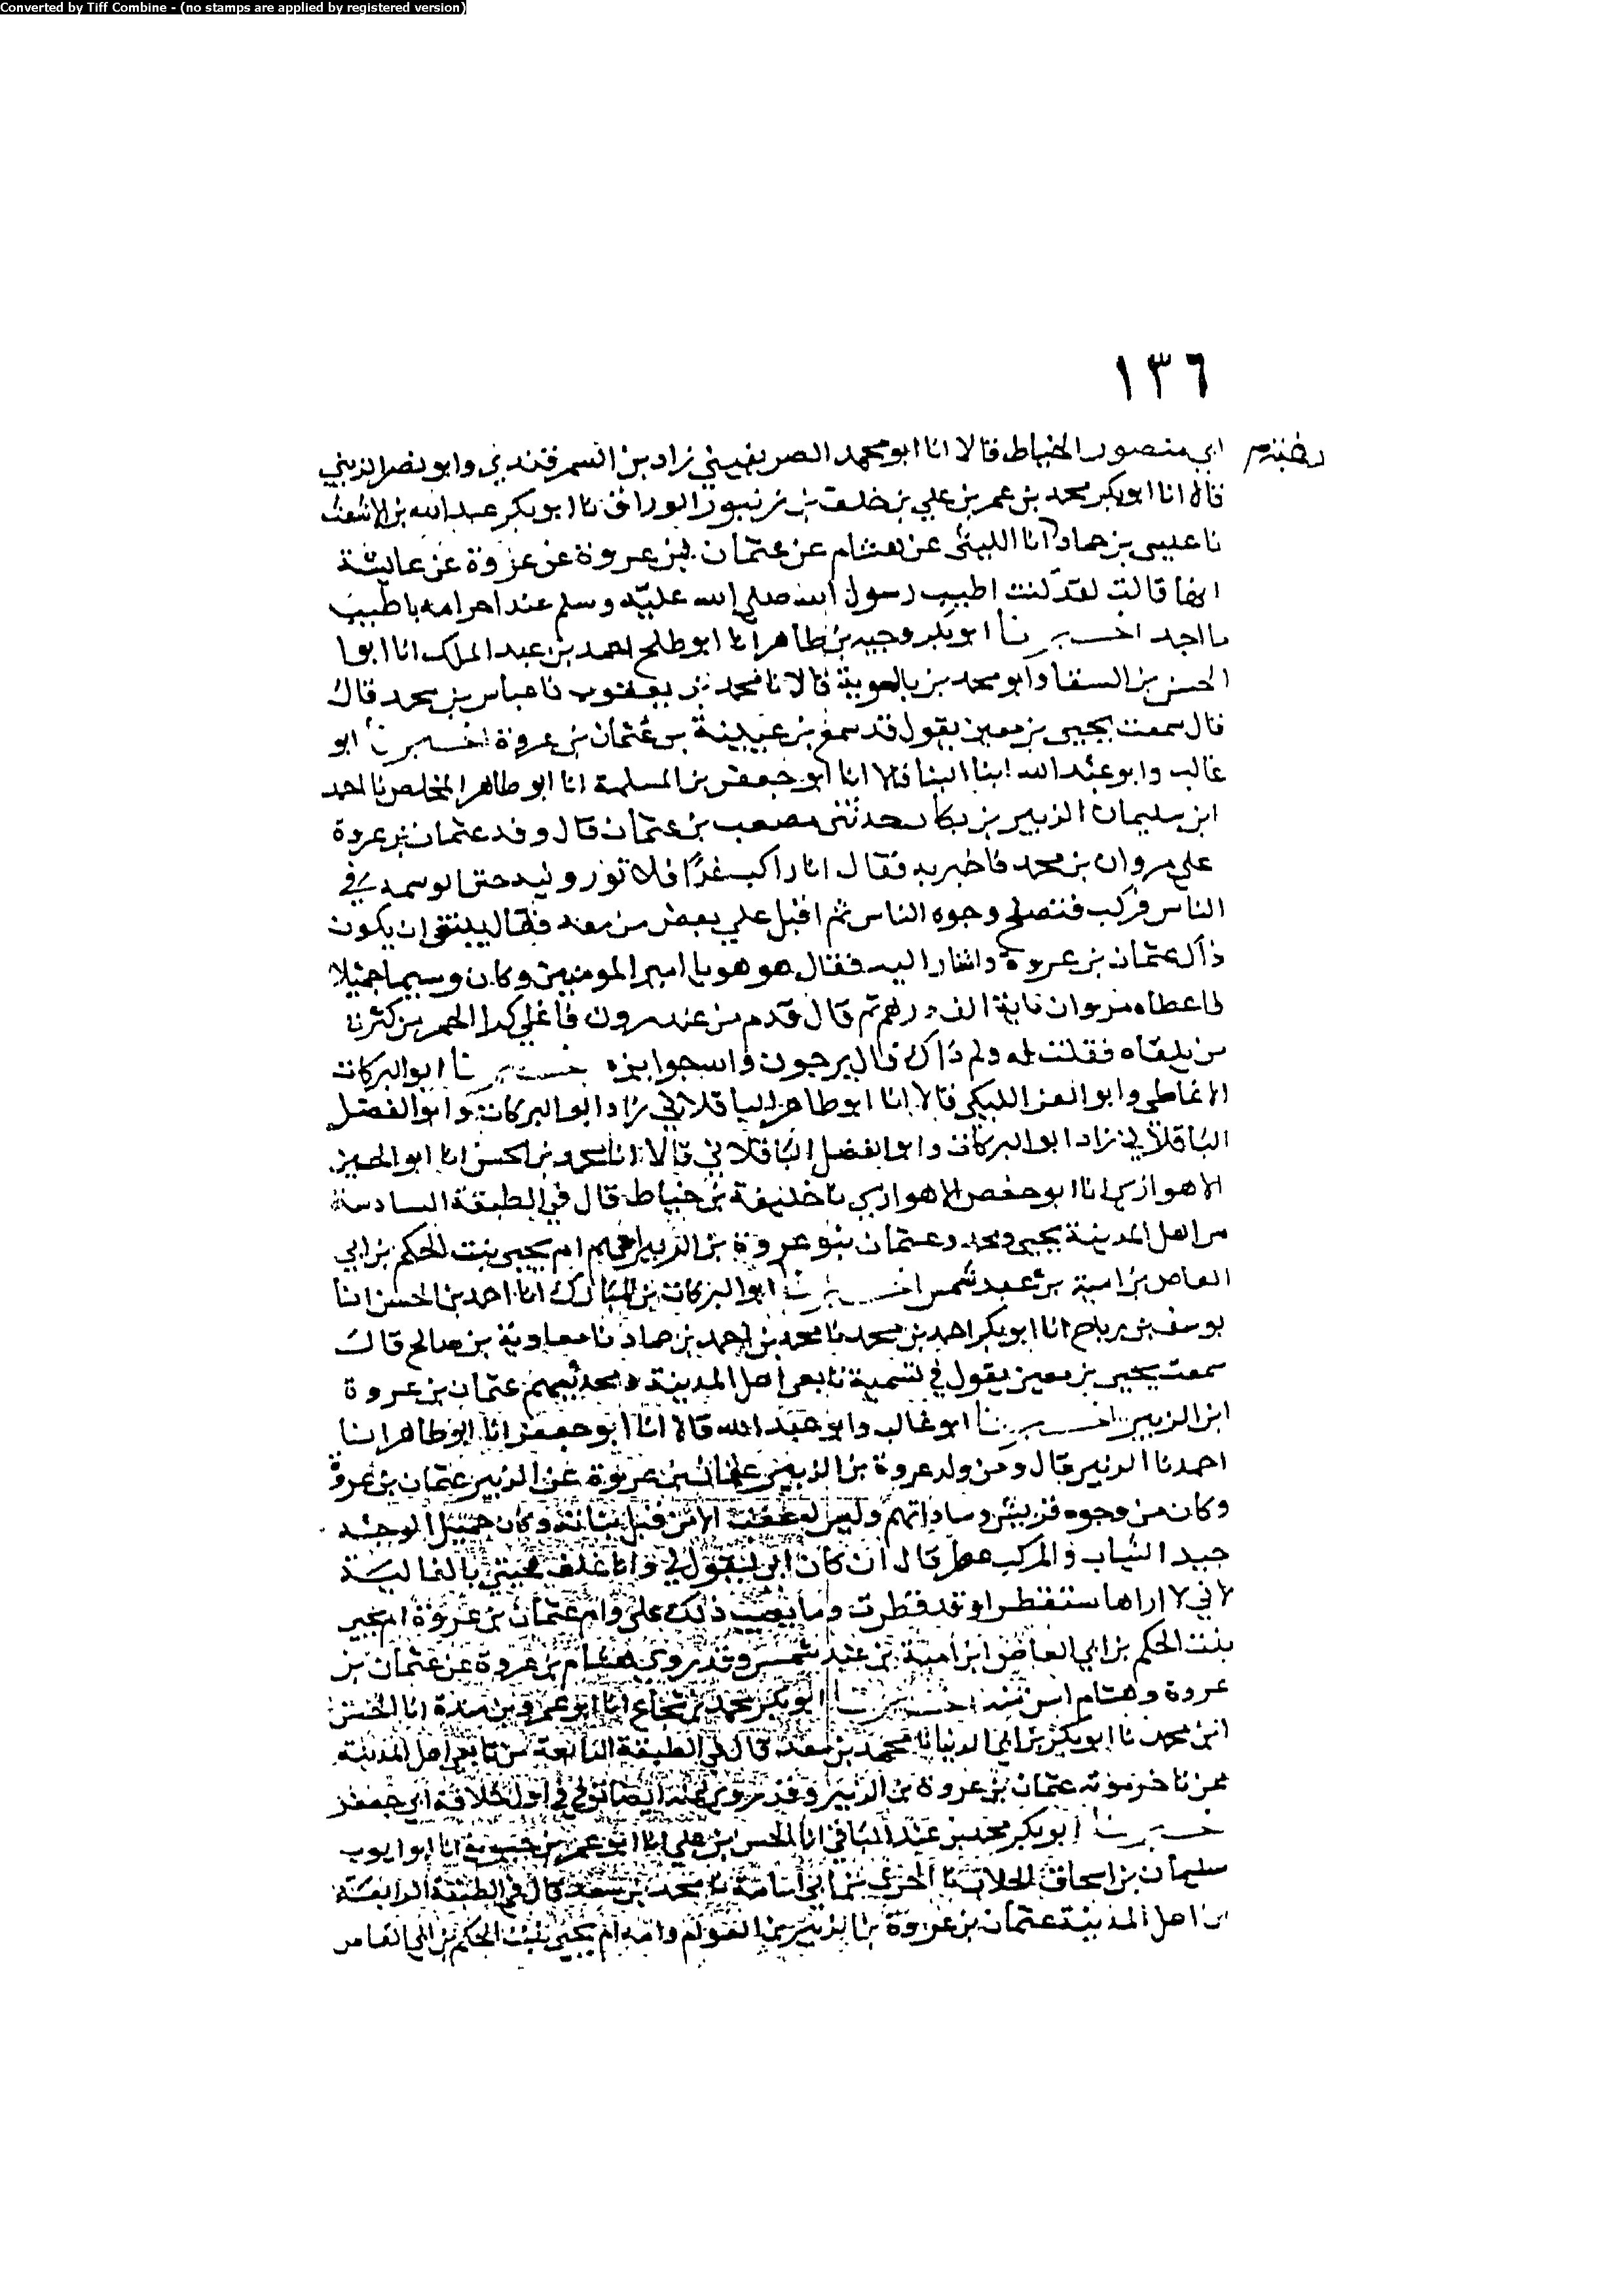 Converted by Tiff Combine - (no stamps are applied by registered version)
١٣٦
ابي منصور الخياط قالا انا ابو محمد الصريفيني زاد بن السمرقندي وابو نصر الزينبي
قالا انا ابو بكر محمد بن عمر بن علي بن خلف بن زنبور الوراق نا ابو بكر عبد الله بن الاشعث
نا عيسى بن حماد انا الليث عن هشام عن عثمان بن عروة عن عروة عن عايشة
انها قالت لقد كنت اطيب رسول الله صلى الله عليه وسلم عند احرامه باطيب
ما اجد اخبرنا ابو بكر وجيه بن طاهر انا ابو صالح احمد بن عبد الملك انا ابوا
الحسن بن السقا وابو محمد بن بالوية قالا نا محمد بن يعقوب نا عباس بن محمد قال
قال سمعت يحيى بن معين يقول قد سمع بن عيينة من عثمان بن عروة اخبرنا ابو
غالب وابو عبد الله ابنا البنا قالا انا ابو جعفر بن المسلمة انا ابو طاهر المخلص نا احمد
ابن سليمان الزبير بن بكار حدثني مصعب بن عثمان قال وفد عثمان بن عروة
على مروان بن محمد فاخبر به فقال انا راكب غدا فلا تورونيه حتى اتوسمه في
الناس فركب فتصفح وجوه الناس ثم اقبل على بعض من معه فقال ينبغي ان يكون
ذاك عثمان بن عروة واشار اليه فقال هو هو يا امير المومنين وكان وسيما جميلا
فاعطاه مروان ماية الف درهم ثم قال قدم من عند مروان فاغلى كرا الحمر من كثرة
من يلقاه فقلت له ولم ذاك قال يرجون والله جوايزه اخبرنا ابو البركات
الانماطي وابو العز الكيلي قالا انا ابو طاهر الباقلاني زاد ابو البركات وابو الفضل
الباقلاني زاد ابو البركات وابو الفضل الباقلاني قالا انا محمد بن الحسن انا ابو الحسين
الاهوازي انا ابو حفص الاهوازي نا خليفة بن خياط قال في الطبقة السادسة
من اهل المدينة يحيى ومحمد وعثمان بنو عروة بن الزبير امهم ام يحيى بنت الحكم بن ابي
العاص بن امية بن عبد شمس اخبرنا ابو البركات بن المبارك انا احمد بن الحسن انا
يوسف بن رباح انا ابو بكر احمد بن محمد نا محمد بن احمد بن حماد نا معاوية بن صالح قال
سمعت يحيى بن معين يقول في تسمية تابعي اهل المدينة ومحدثيهم عثمان بن عروة
ابن الزبير اخبرنا ابو غالب وابو عبد الله قالا انا ابو جعفر انا ابو طاهر انا
احمد نا الزبير قال ومن ولد عروة بن الزبير عثمان بن عروة عن الزبير عثمان بن عروة
وكان من وجوه قريش وساداتهم وليس له عقب الا من قبل بناته وكان جميل الوجه
جيد الثياب والمركب عطر قال ان كان ابي ليقول لي وانا اغلف لحيتي بالغالية
لاني لا اراها ستقطر او قد قطرت وما يعيب ذلك علي وام عثمان بن عروة ام يحيى
بنت الحكم بن ابي العاص ابن امية بن عبد شمس وقد روى هشام بن عروة عن عثمان بن
عروة وهشام اسن منه اخبرنا ابو بكر محمد بن شجاع انا ابو عمرو بن مندة انا الحسن
ابن محمد نا ابو بكر بن ابي الدنيا نا محمد بن سعد قال في الطبقة الرابعة من تابعي اهل المدينة
ممن تاخر موته عثمان بن عروة بن الزبير وقد روي عنه ايضا توفي في اول خلافة ابي جعفر
اخبرنا ابو بكر محمد بن عبد الباقي انا الحسن بن علي انا ابو عمر بن حيوية انا ابو ايوب
سليمان بن اسحاق الجلاب نا الحرث بن ابي اسامة نا محمد بن سعد قال في الطبقة الرابعة
من اهل المدينة عثمان بن عروة بن الزبير بن العوام وامه ام يحيى بنت الحكم بن ابي العاص